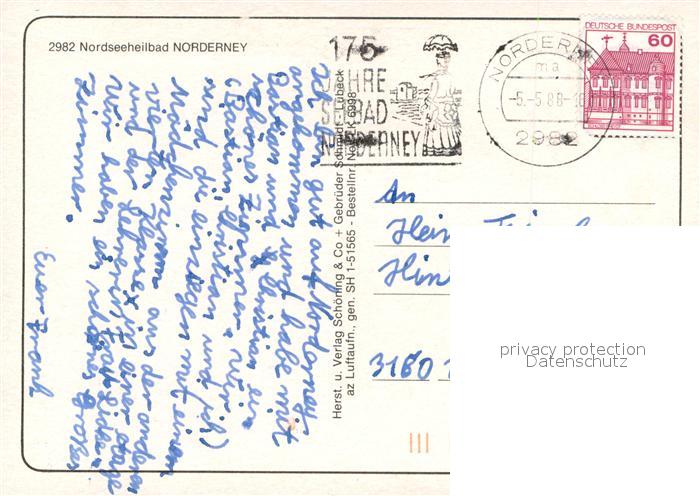 2982 Nordseeheilbad NORDERNEY
175
JAHRE
SEEBAD
NORDERNEY
NORDERN
ma
-5.-5.88-16
2982
DEUTSCHE BUNDESPOST
60
Ich bin gut auf Norderney
angekommen und habe mit
Bastian und Christian ein
schönes Zimmer. Wir
(Bastian, Christian und ich)
sind die einzigen mit einem
Mädchenzimm. aus der anderen
vierten Klasse in einer Etage
und der Lehrerin
Wir haben ein schönes großes
Zimmer.
Euer Frank
Herst. u. Verlag Schöning & Co + Gebrüder Schmidt - Lübeck
az Luftaufn., gen. SH 1-51565 - Bestellnr. No K 6998
An
Hein
Hin
3160 1
privacy protection
Datenschutz